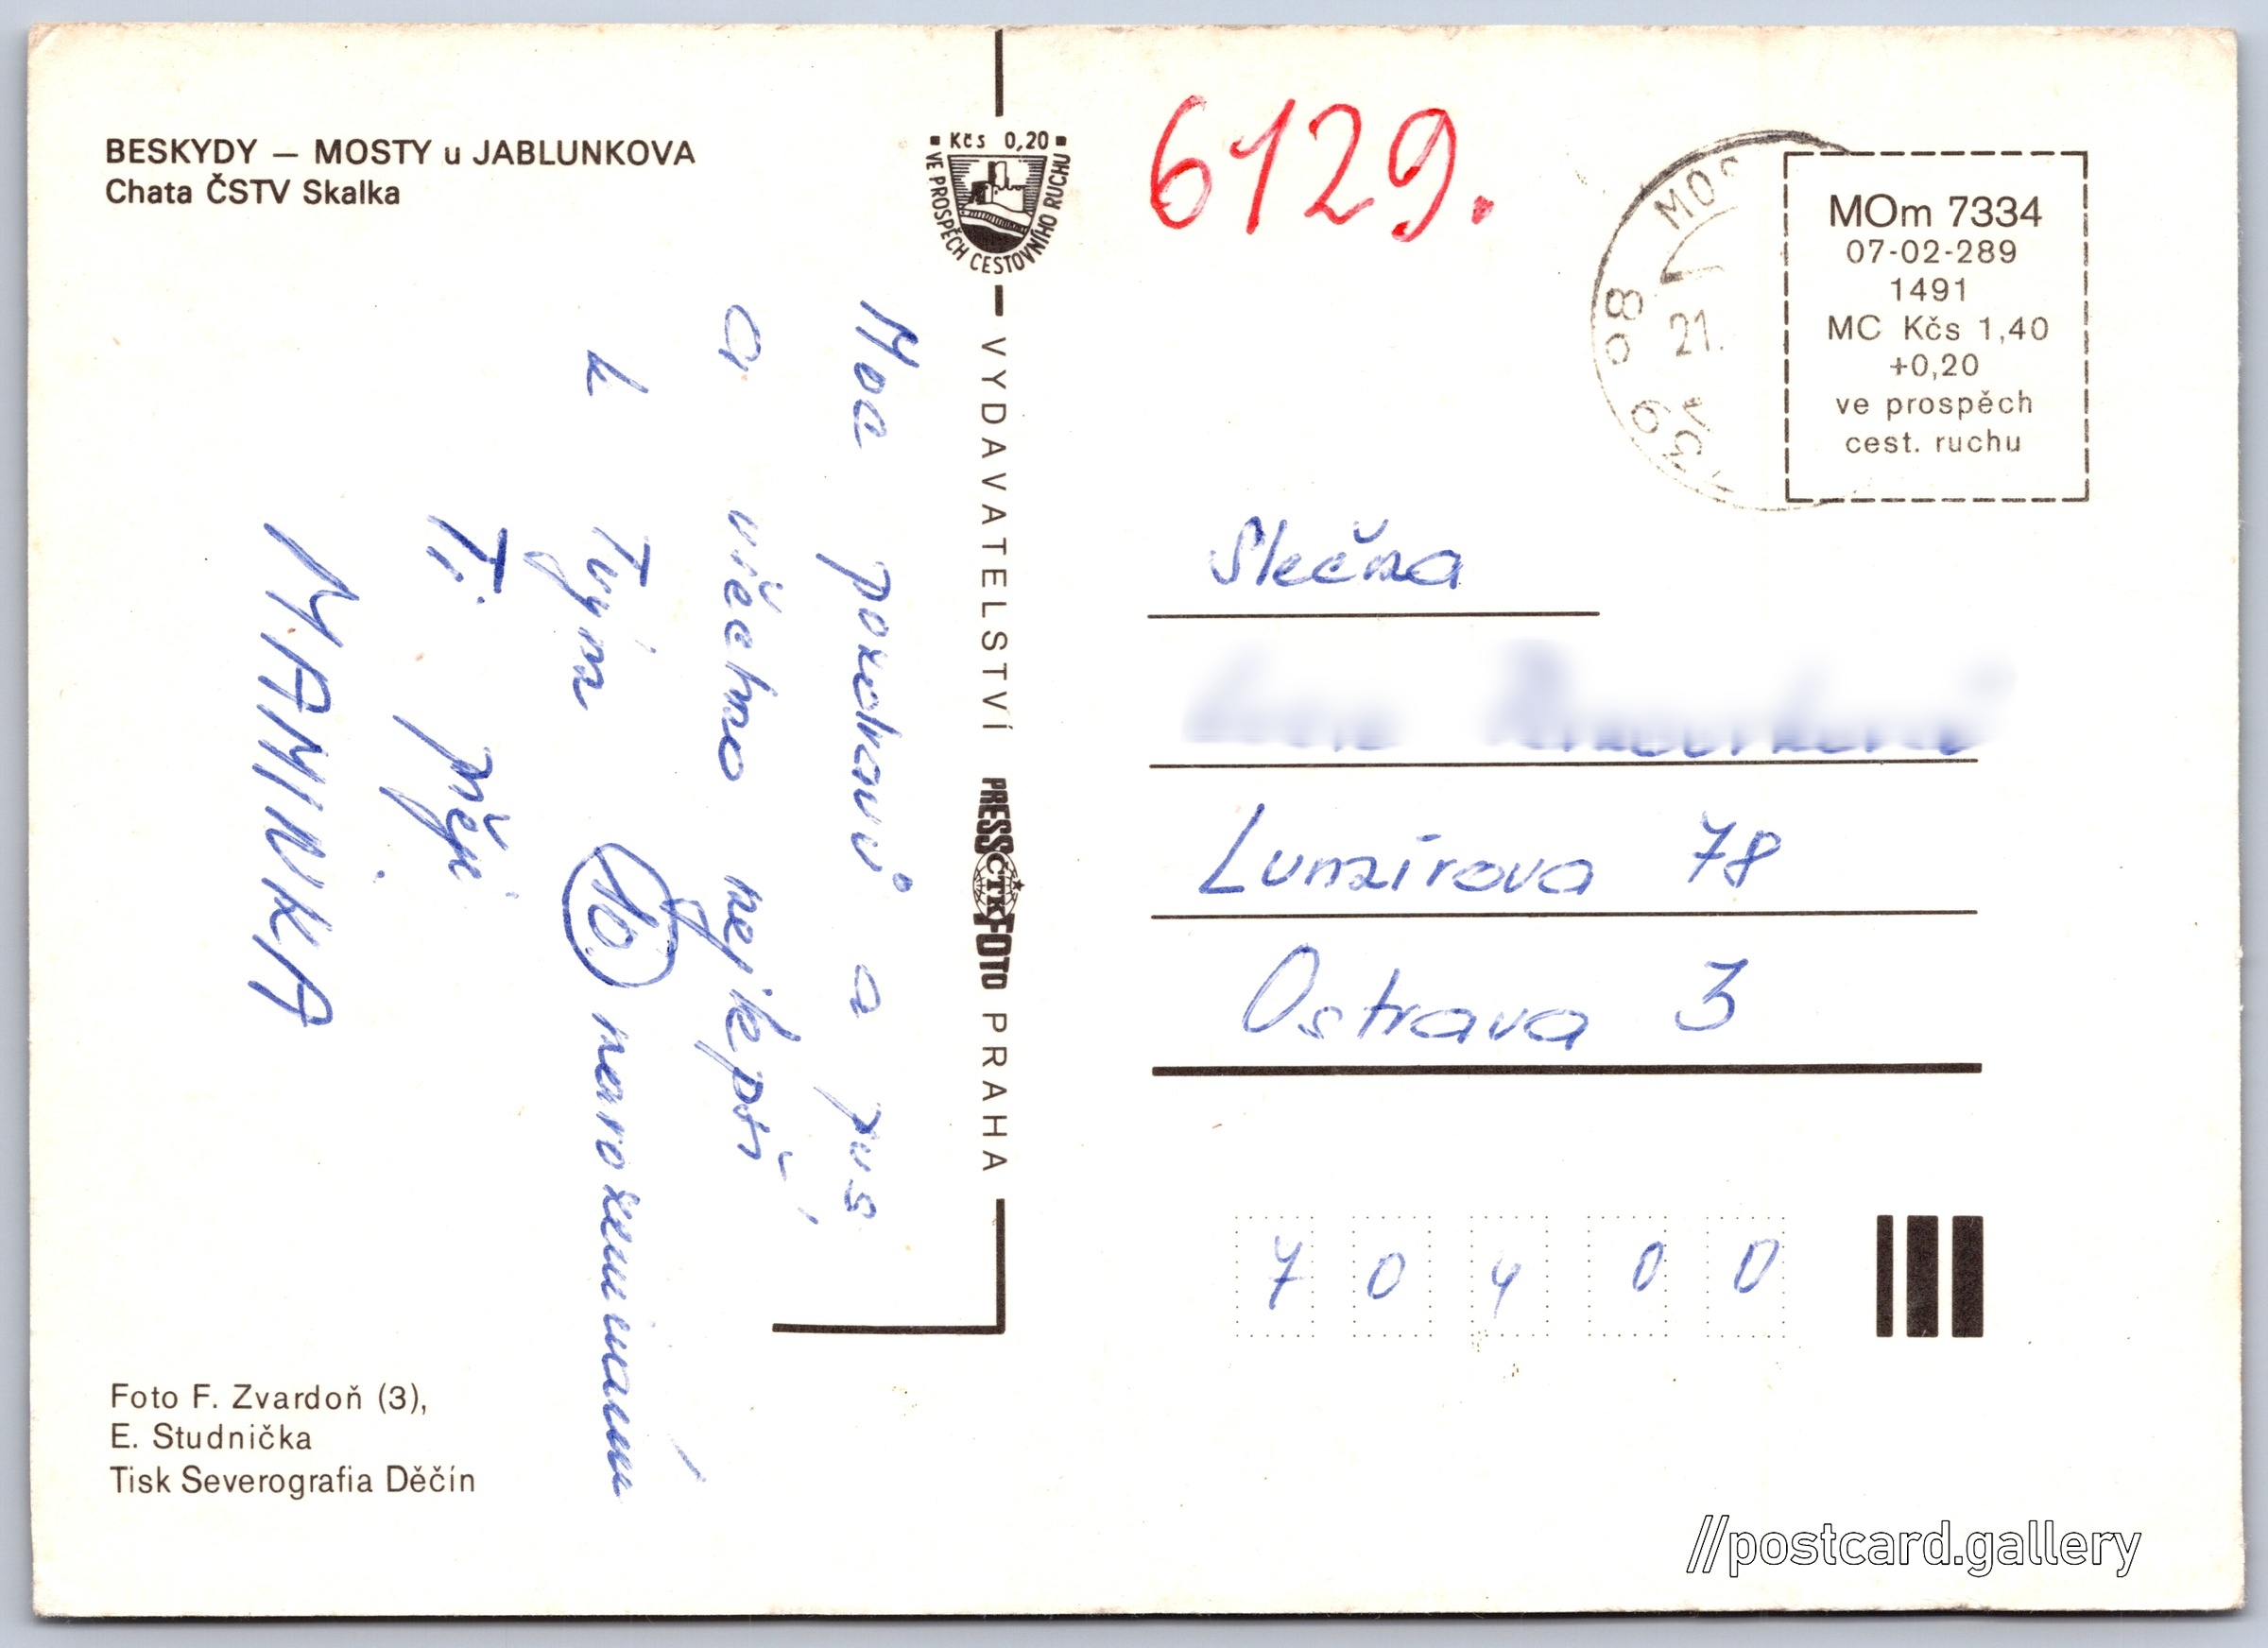 BESKYDY — MOSTY u JABLUNKOVA
Chata ČSTV Skalka
Moc pozdravů a pus
a všechno nejlepší
k Tvým 10. narozeninám
Ti přeji
MAMINKA
Foto F. Zvardoň (3),
E. Studnička
Tisk Severografia Děčín
Kčs 0,20
VE PROSPĚCH CESTOVNÍHO RUCHU
VYDAVATELSTVÍ PRESSFOTO PRAHA
ČTK
6129.
21.
MOm 7334
07-02-289
1491
MC Kčs 1,40
+0,20
ve prospěch
cest. ruchu
Slečna
Lumírova 78
Ostrava 3
704 00
//postcard.gallery